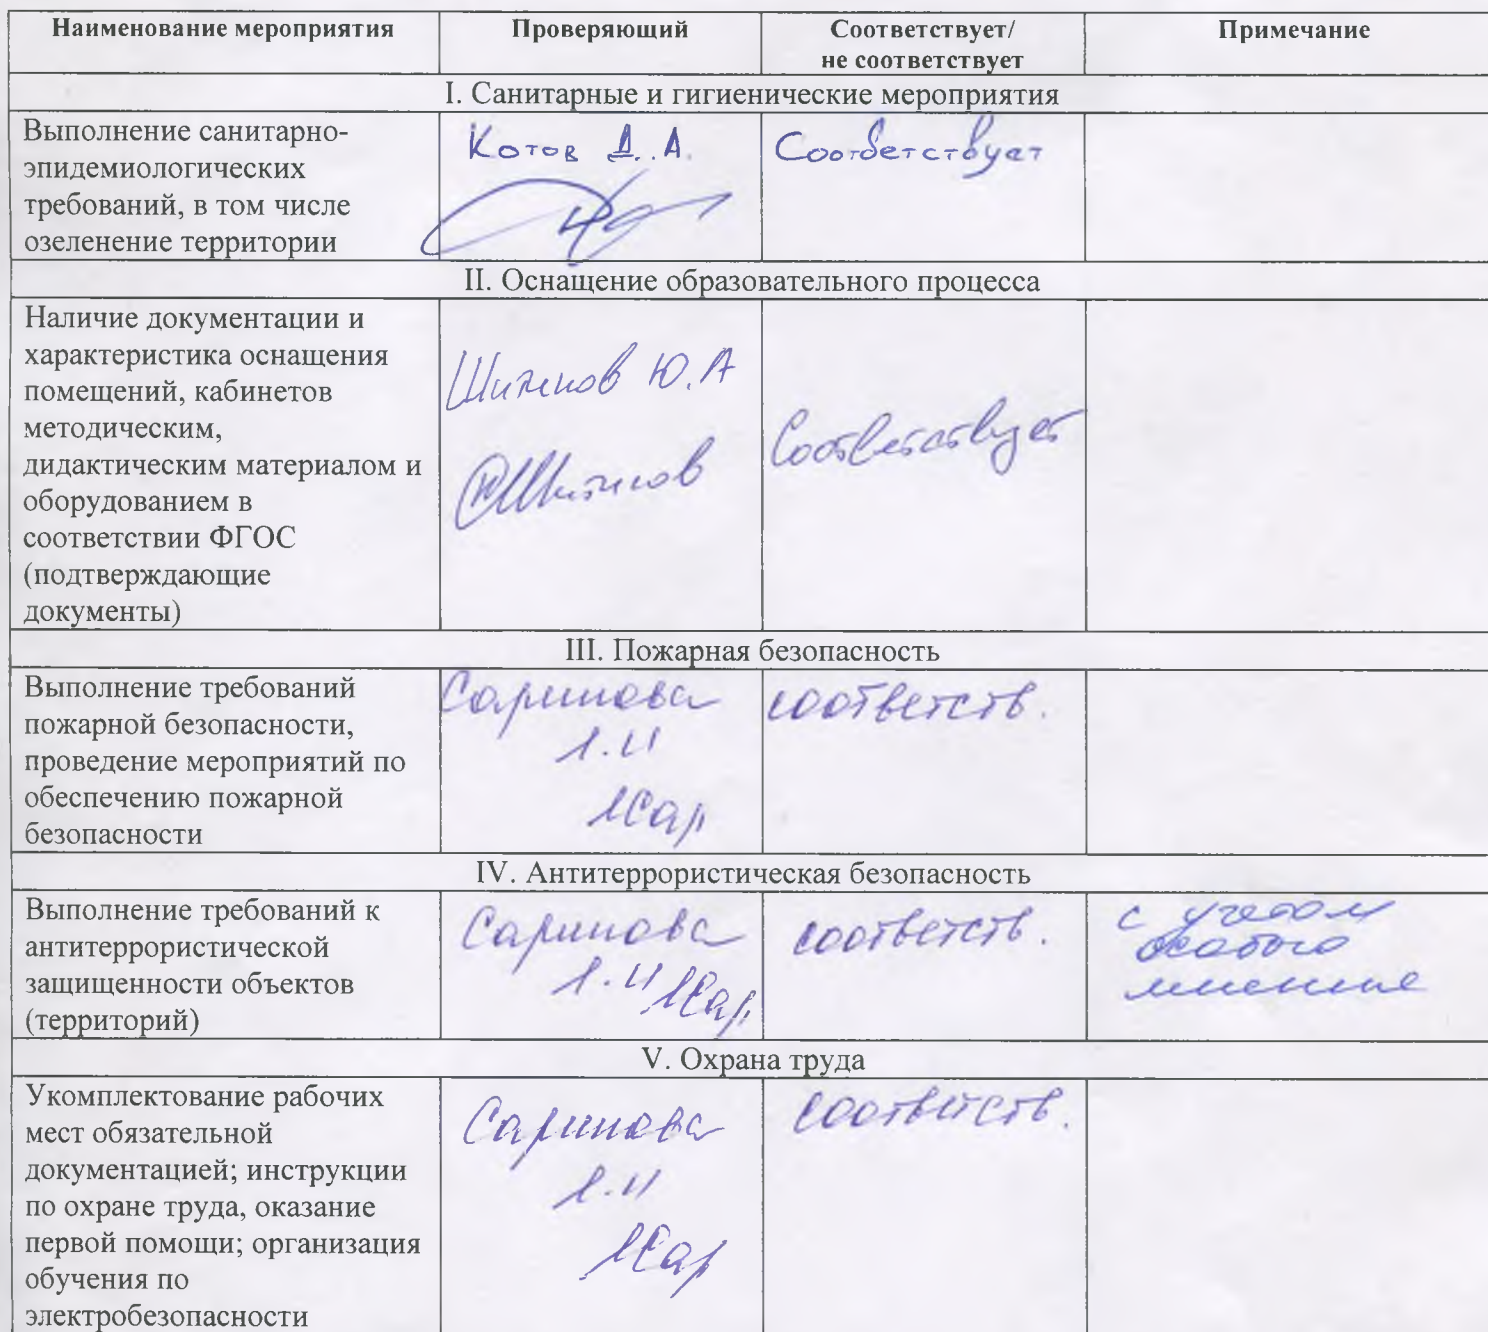 Наименование мероприятия Проверяющий Соответствует/ Примечание
не соответствует
I. Санитарные и гигиенические мероприятия
Выполнение санитарно-
эпидемиологических
требований, в том числе
озеленение территории
Котов Д.А.
Соответствует
II. Оснащение образовательного процесса
Наличие документации и
характеристика оснащения
помещений, кабинетов
методическим,
дидактическим материалом и
оборудованием в
соответствии ФГОС
(подтверждающие
документы)
Ю.А
Соответствует
III. Пожарная безопасность
Выполнение требований
пожарной безопасности,
проведение мероприятий по
обеспечению пожарной
безопасности
Саринова
Л.И
ЛСар
соответств.
IV. Антитеррористическая безопасность
Выполнение требований к
антитеррористической
защищенности объектов
(территорий)
Саринова
Л.И ЛСар
соответств.
с учетом
особого
мнения
V. Охрана труда
Укомплектование рабочих
мест обязательной
документацией; инструкции
по охране труда, оказание
первой помощи; организация
обучения по
электробезопасности
Саринова
Л.И
ЛСар
соответств.